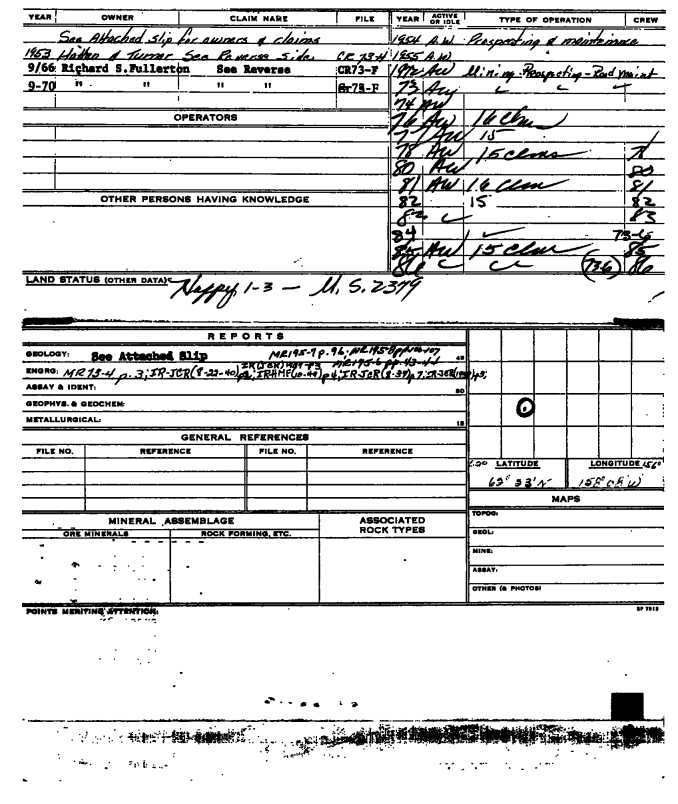 YEAR OWNER CLAIM NAME FILE YEAR ACTIVE OR IDLE TYPE OF OPERATION CREW
See Attached slip for owners & claims 1954 A.W. Prospecting & maintenance
1953 Hatten & Turner See Reverse Side CR 73-4 1955 A.W.
9/66 Richard S.Fullerton See Reverse CR73-F 1972 AW Mining-Prospecting-Road maint
9-70 " " " " CR73-F 73 AW
74 AW
OPERATORS 76 AW 16 Clm
77 AW 15
78 AW 15 clms 78
80 AW 80
81 AW 16 Clm 81
OTHER PERSONS HAVING KNOWLEDGE 82 15 82
83 83
84 73-6
85 AW 15 Clm 85
86 (73-6) 86
LAND STATUS (OTHER DATA) Happy 1-3 — M.S. 2379
REPORTS
GEOLOGY: See Attached Slip MR195-7 p.96; 45
ENGRG: MR 73-4 p.3; IR-JCR(8-22-40) IR-HMF(10-44) p4; IR-JCR(8-39) p7;
ASSAY & IDENT: 30
GEOPHYS. & GEOCHEM:
METALLURGICAL: 15
GENERAL REFERENCES
FILE NO. REFERENCE FILE NO. REFERENCE
LATITUDE LONGITUDE 156°
63° 33' N 158° 08' W
MAPS
MINERAL ASSEMBLAGE ASSOCIATED ROCK TYPES TOPOG:
ORE MINERALS ROCK FORMING, ETC. GEOL:
MINE:
ASSAY:
OTHER (& PHOTOS)
POINTS MERITING ATTENTION: SP 7913